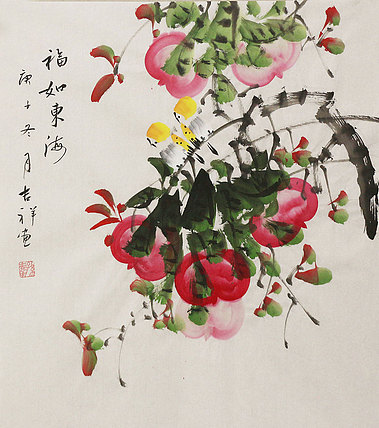 福如東海
庚子冬月吉祥畫